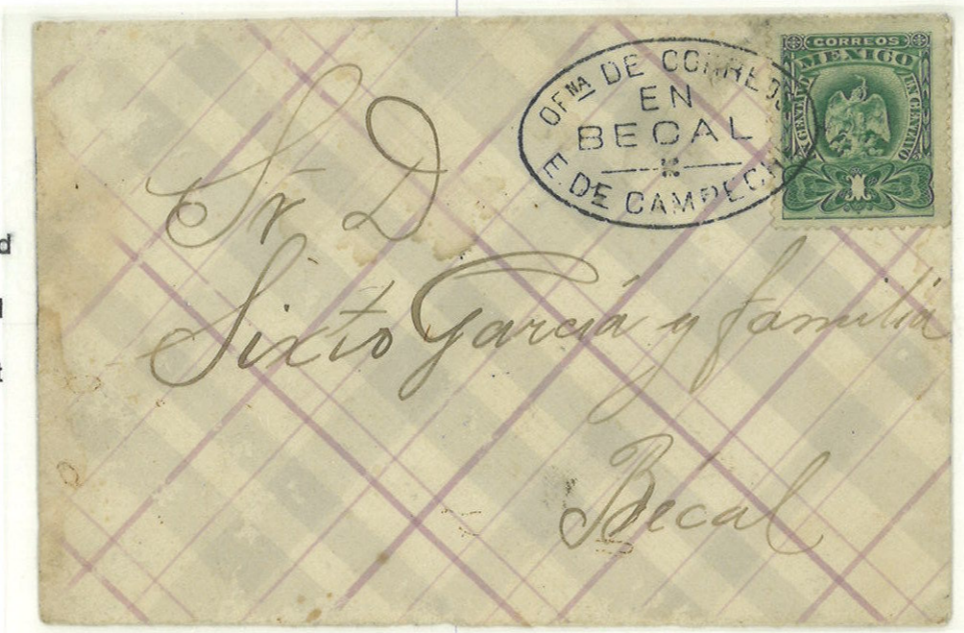 OFNA DE CORREOS
EN
BECAL
E. DE CAMPECHE
CORREOS
MEXICO
UN CENTAVO
UN CENTAVO
1
Sr. D.
Sixto García y familia
Bécal
d
t